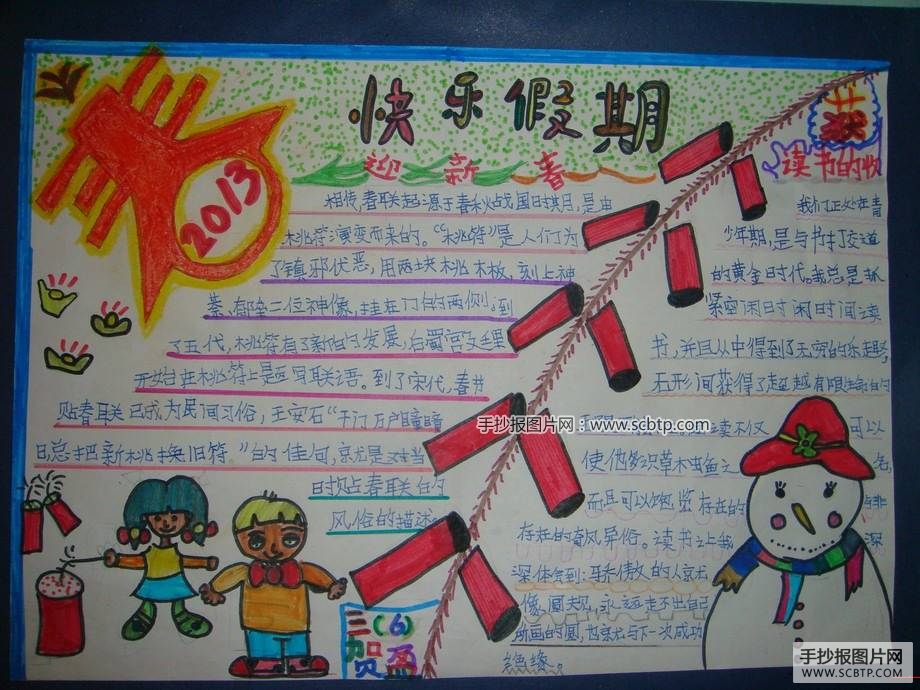 快乐假期
迎新春
2013
相传,春联起源于春秋战国时期,是由
桃符演变而来的。“桃符”是人们为
了镇邪伏恶,用两块桃木板,刻上神
荼、郁垒二位神像,挂在门的两侧。到
了五代,桃符有了新的发展,后蜀宫廷里
开始在桃符上题写联语。到了宋代,春节
贴春联已成为民间习俗,王安石“千门万户瞳瞳
日,总把新桃换旧符。”的佳句,就是对当
时贴春联的
风俗的描述。
获
读书的收
我们正处在青
少年期,是与书打交道
的黄金时代。我总是抓
紧空闲时闲时间读
书,并且从中得到了无穷的乐趣,
无形间获得了超越有限生命的
读不仅 可以
使他多识草木虫鱼之 名,
而且可以饱览存在的
存在的奇风异俗。读书之上我 深
深体会到:骄傲的人就
像圆规,永远走不出自己
所画的圆,也就与下一次成功
绝缘。
三(6)
贺盈
手抄报图片网:www.scbtp.com
手抄报图片网
WWW.SCBTP.COM